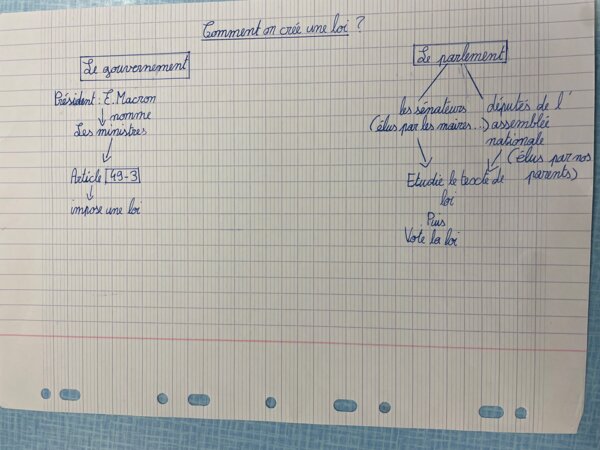 Comment on crée une loi ?
Le gouvernement
Président : E. Macron
nomme
Les ministres
Article 49-3
impose une loi
Le parlement
les sénateurs
(élus par les maires...)
députés de l'
assemblée
nationale
(élus par nos
parents)
Etudie le texte de
loi
Puis
Vote la loi